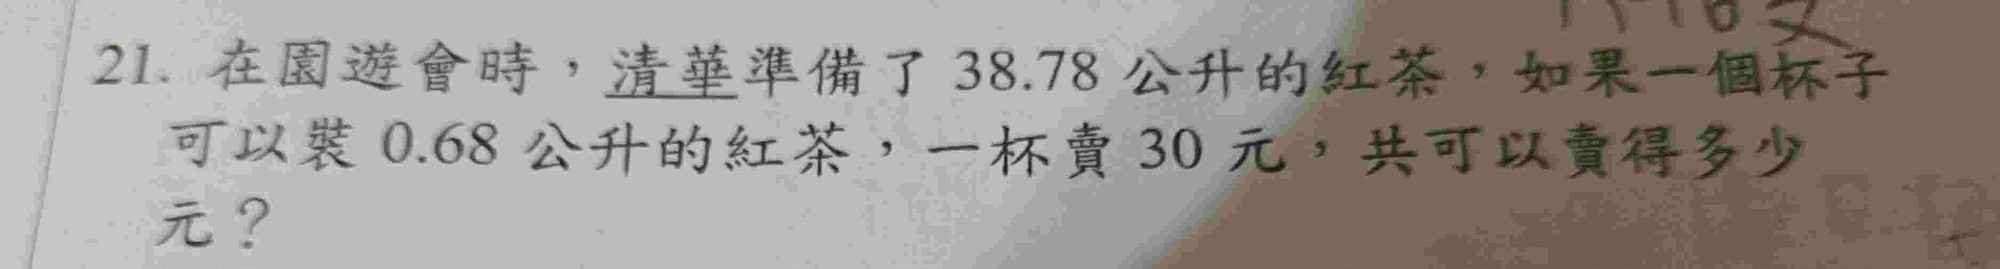 21. 在園遊會時，清華準備了 38.78 公升的紅茶，如果一個杯子
可以裝 0.68 公升的紅茶，一杯賣 30 元，共可以賣得多少
元？